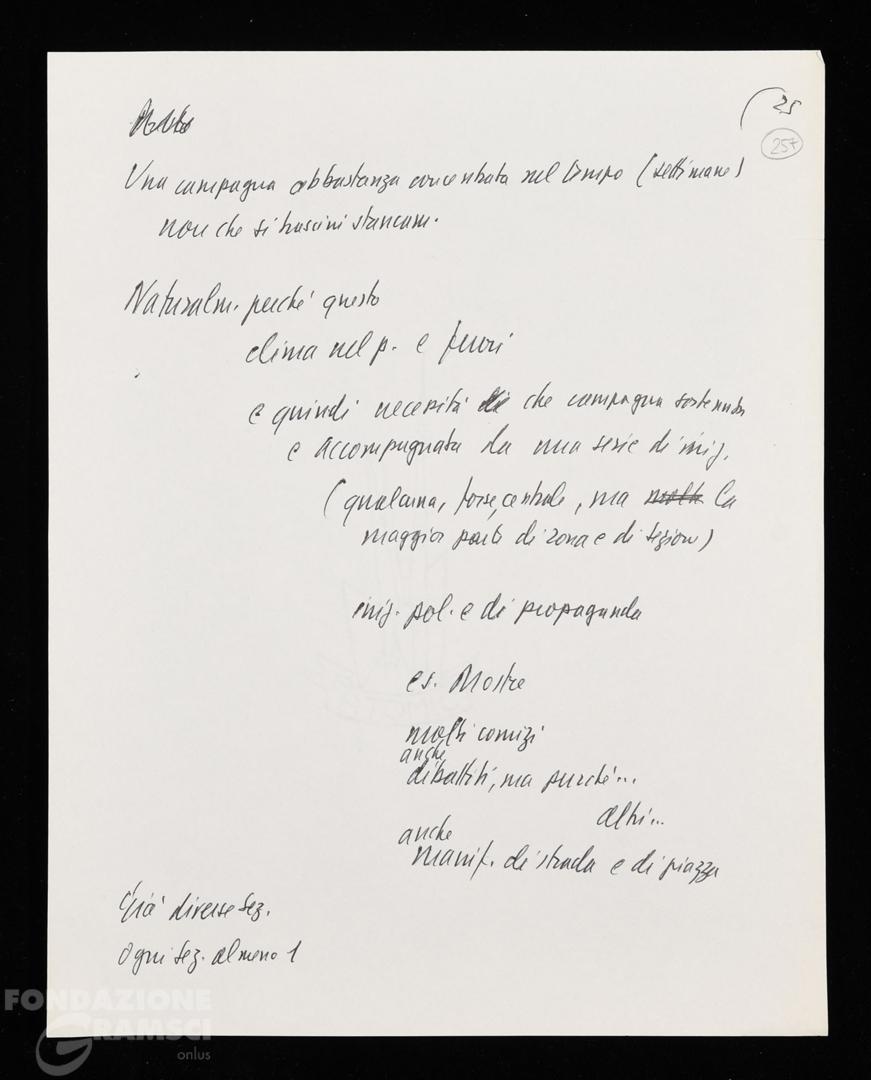 25
257
Una campagna abbastanza concentrata nel tempo (settimane)
non che si trascini stancam.
Naturalm. perché questo
clima nel p. e fuori
e quindi necessità che campagna sostenuta
e accompagnata da una serie di iniz.
(qualcuna, forse, centrale, ma molte la
maggior parte di zona e di sezione)
iniz. pol. e di propaganda
es. Mostre
molti comizi
anche
dibattiti, ma purché...
altri...
anche
manif. di strada e di piazza
Già diverse sez.
Ogni sez. almeno 1
FONDAZIONE
GRAMSCI
onlus